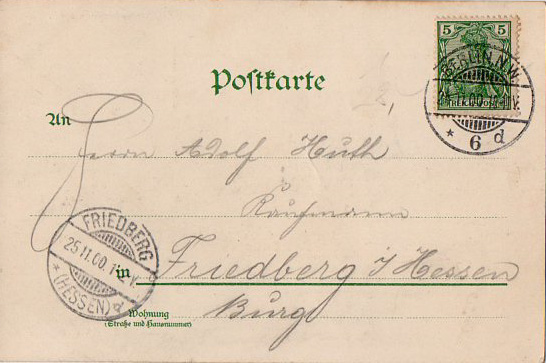 5 5
BERLIN, N.W.
24.11.00.
* 6 d
Postkarte
An
Herrn Adolf Huth
Kaufmann
FRIEDBERG
25.11.00. 1-2V.
* (HESSEN) d
in Friedberg i/Hessen
Burg
Wohnung
(Straße und Hausnummer)